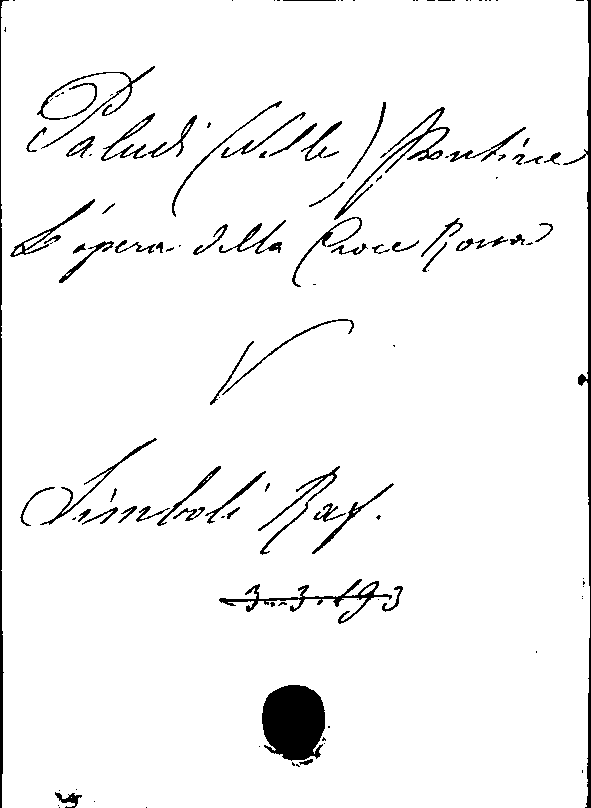 Paludi (Nelle) Pontine
L'opera della Croce Rossa
V
Simboli Raf.
3.3.193